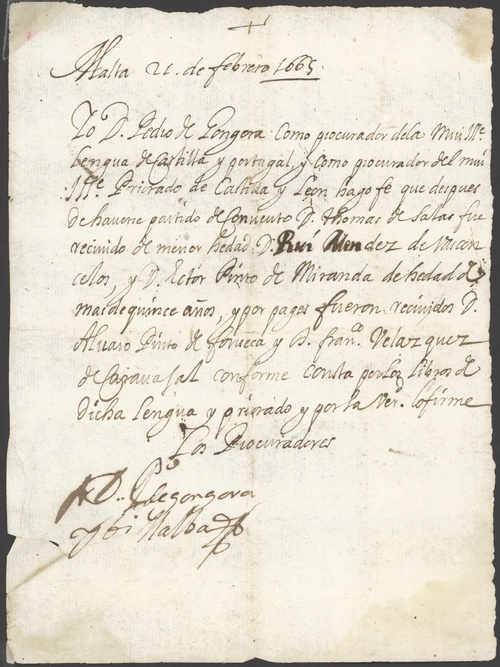 Malta 21. de febrero 1665
Yo D. Pedro de Gongora Como procurador dela Mui Ille
Lengua de Castilla y portugal, y Como procurador del mui
Ille. Priorado de Castilla y Leon hago fe que despues
de haverse partido de Convento D. Thomas de Salas fue
recivido de menor hedad D. Rui Mendez de Vascon
celos, y D. Ector Pinto de Miranda de hedad de
mas de quince años, y por pages fueron recividos D.
Alvaro Pinto de fonseca y D. franco. Velazquez
de Caravajal conforme Consta por los Libros de
dicha Lengua y priorado y por la Ver. lo firme
Los Procuradores
D. P. de gongora